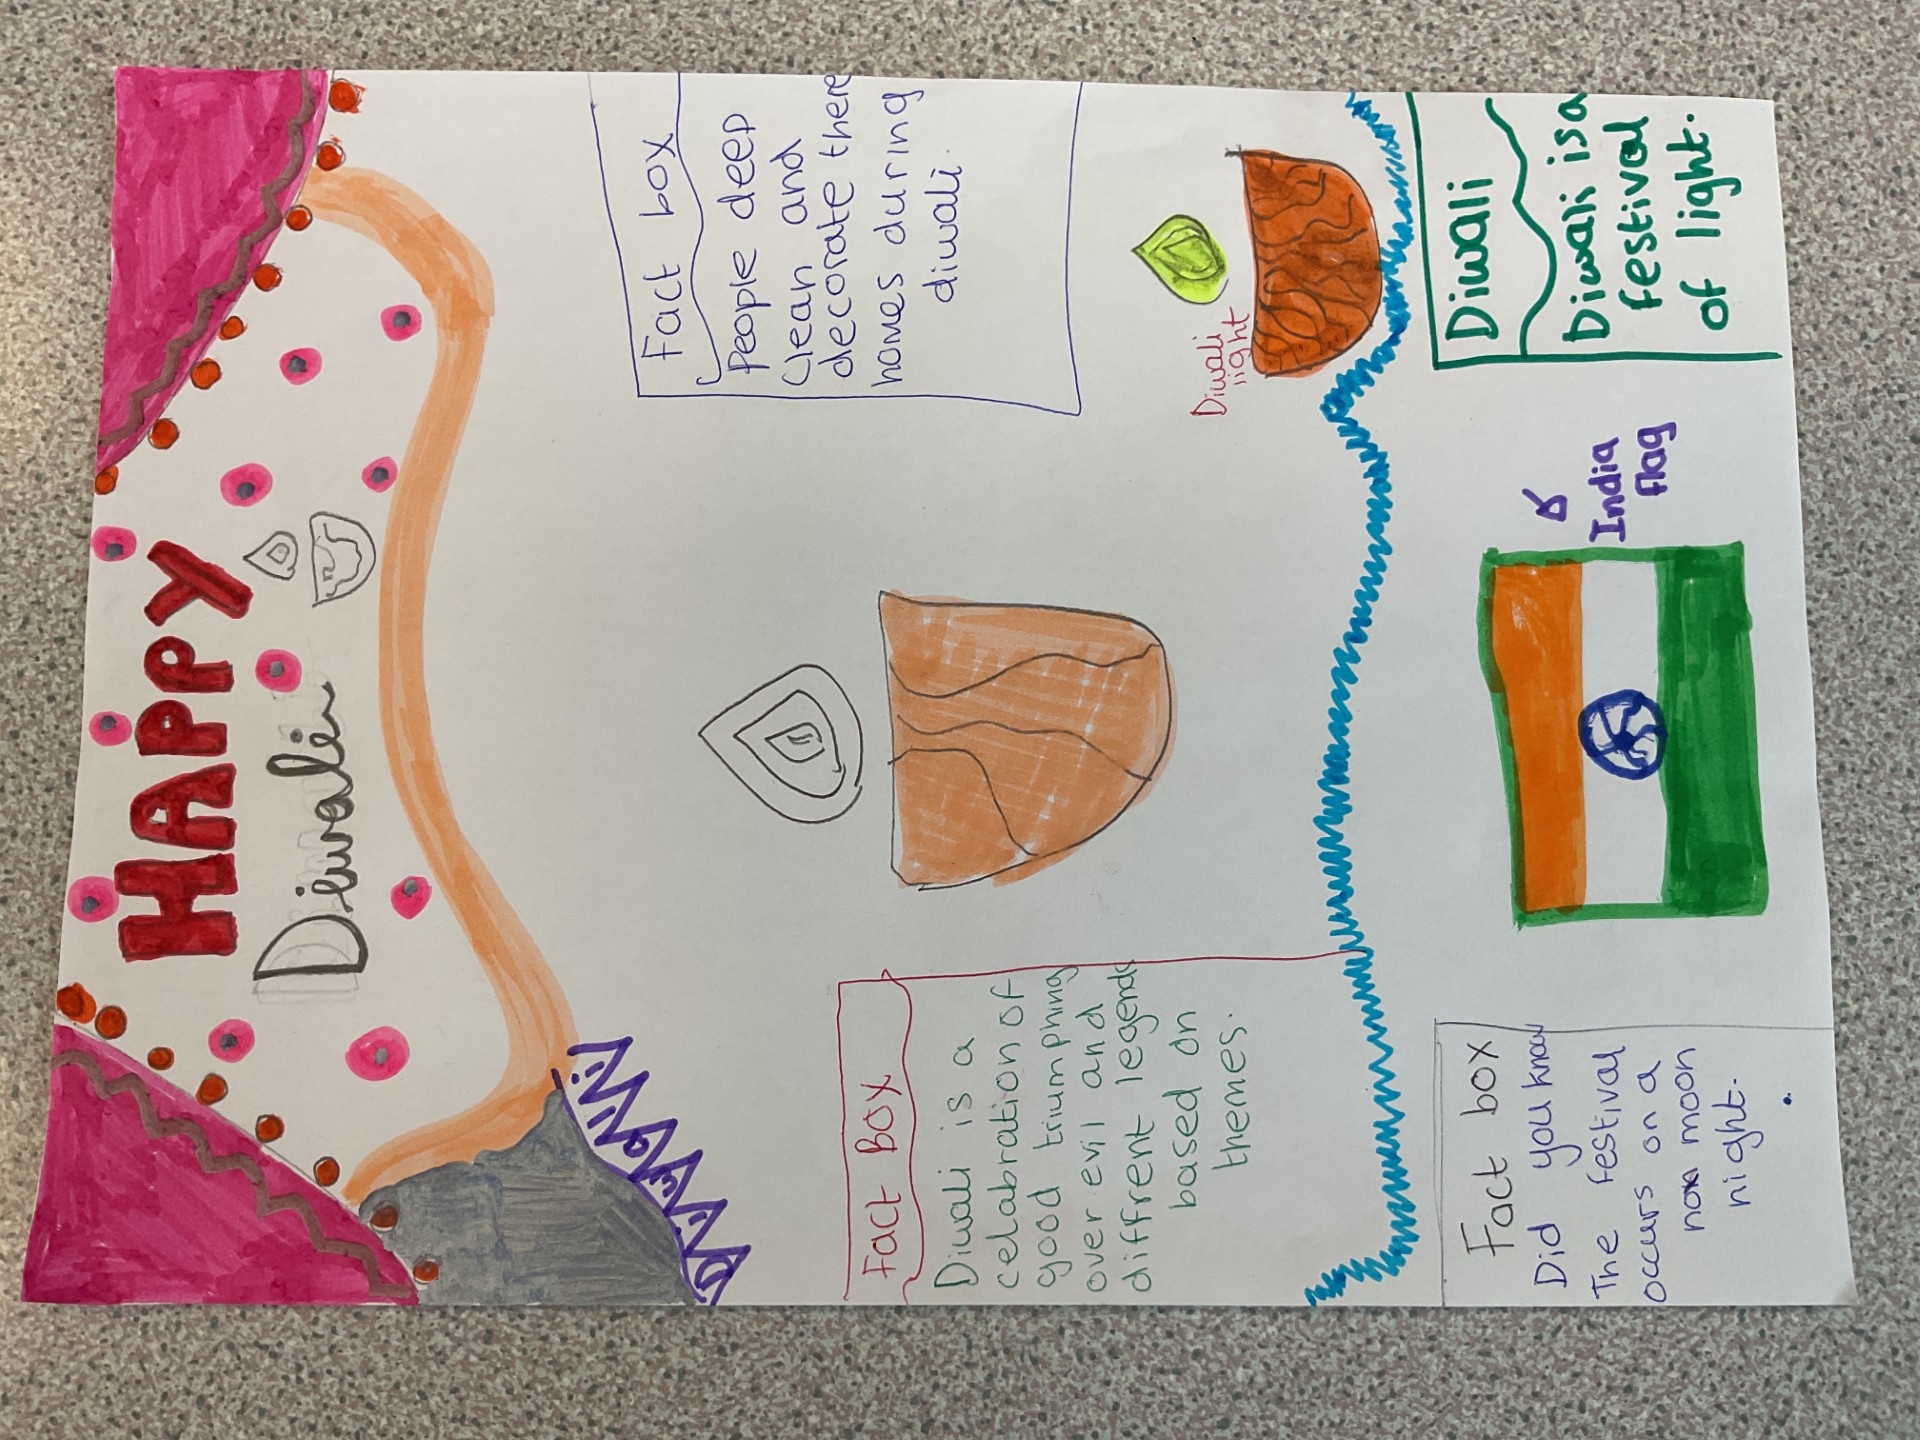 HAPPY
Diwali
Fact box
People deep
clean and
decorate there
homes during
diwali.
Fact Box
Diwali is a
celabration of
good triumphing
over evil and
diffrent legends
based on
themes.
Diwali
light
Fact box
Did you know
The festival
occurs on a
moon
night.
India
flag
Diwali
Diwali is a
festival
of light.